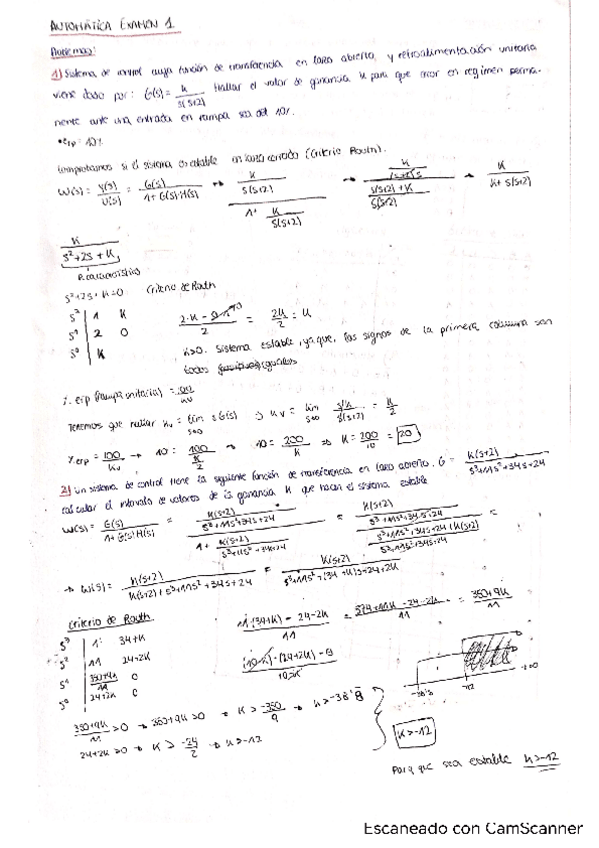 AUTOMÁTICA EXAMEN 1
Problemas:
1) Sistema de control cuya función de transferencia en lazo abierto, y retroalimentación unitaria
viene dado por: G(s) = K / s(s+2) Hallar el valor de ganancia K para que error en regimen perma-
nente ante una entrada en rampa sea del 10%.
• erp = 10%
Comprobamos si el sistema es estable en lazo cerrado (Criterio Routh).
W(s) = Y(s)/U(s) = G(s) / 1+G(s)·H(s) → K/s(s+2) / 1+ K/s(s+2) → / s(s+2)+K / s(s+2) → K / K+s(s+2)
K / s²+2s+K
P. característico
s²+2s+K=0 Criterio de Routh
s² | 1 K
s¹ | 2 0
s⁰ | K
2·K - / 2 = 2K/2 = K
K>0. Sistema estable, ya que, los signos de la primera columna son
todos iguales
% erp (rampa unitaria) = 100/Kv
Tenemos que hallar Kv = lim s→0 s·G(s) → Kv = lim s→0 s·K / s(s+2) = K/2
% erp = 100/Kv → 10 = 100 / K/2 → 10 = 200/K → K = 200/10 = 20
2) Un sistema de control tiene la siguiente función de transferencia en lazo abierto, G = K(s+2) / s³+11s²+34s+24
calcular el intervalo de valores de la ganancia K que hacen el sistema estable
W(s) = G(s) / 1+G(s)·H(s) = K(s+2) / s³+11s²+34s+24 / 1+ K(s+2) / s³+11s²+34s+24 = K(s+2) / s³+11s²+34s+24 / s³+11s²+34s+24+K(s+2) / s³+11s²+34s+24 =
→ W(s) = K(s+2) / K(s+2)+s³+11s²+34s+24 = K(s+2) / s³+11s²+(34+K)s+24+2K
Criterio de Routh
s³ | 1 34+K
s² | 11 24+2K
s¹ | 350+9K / 11 0
s⁰ | 24+2K 0
11·(34+K) - 24-2K / 11 = 374+11K-24-2K / 11 = 350+9K / 11
·(24+2K) - 0
350+9K / 11 > 0 → 350+9K>0 → K > -350/9 → K>-38'8
24+2K>0 → K > -24/2 → K>-12
K>-12
-38'8 -12 +∞
Para que sea estable K>-12
Escaneado con CamScanner